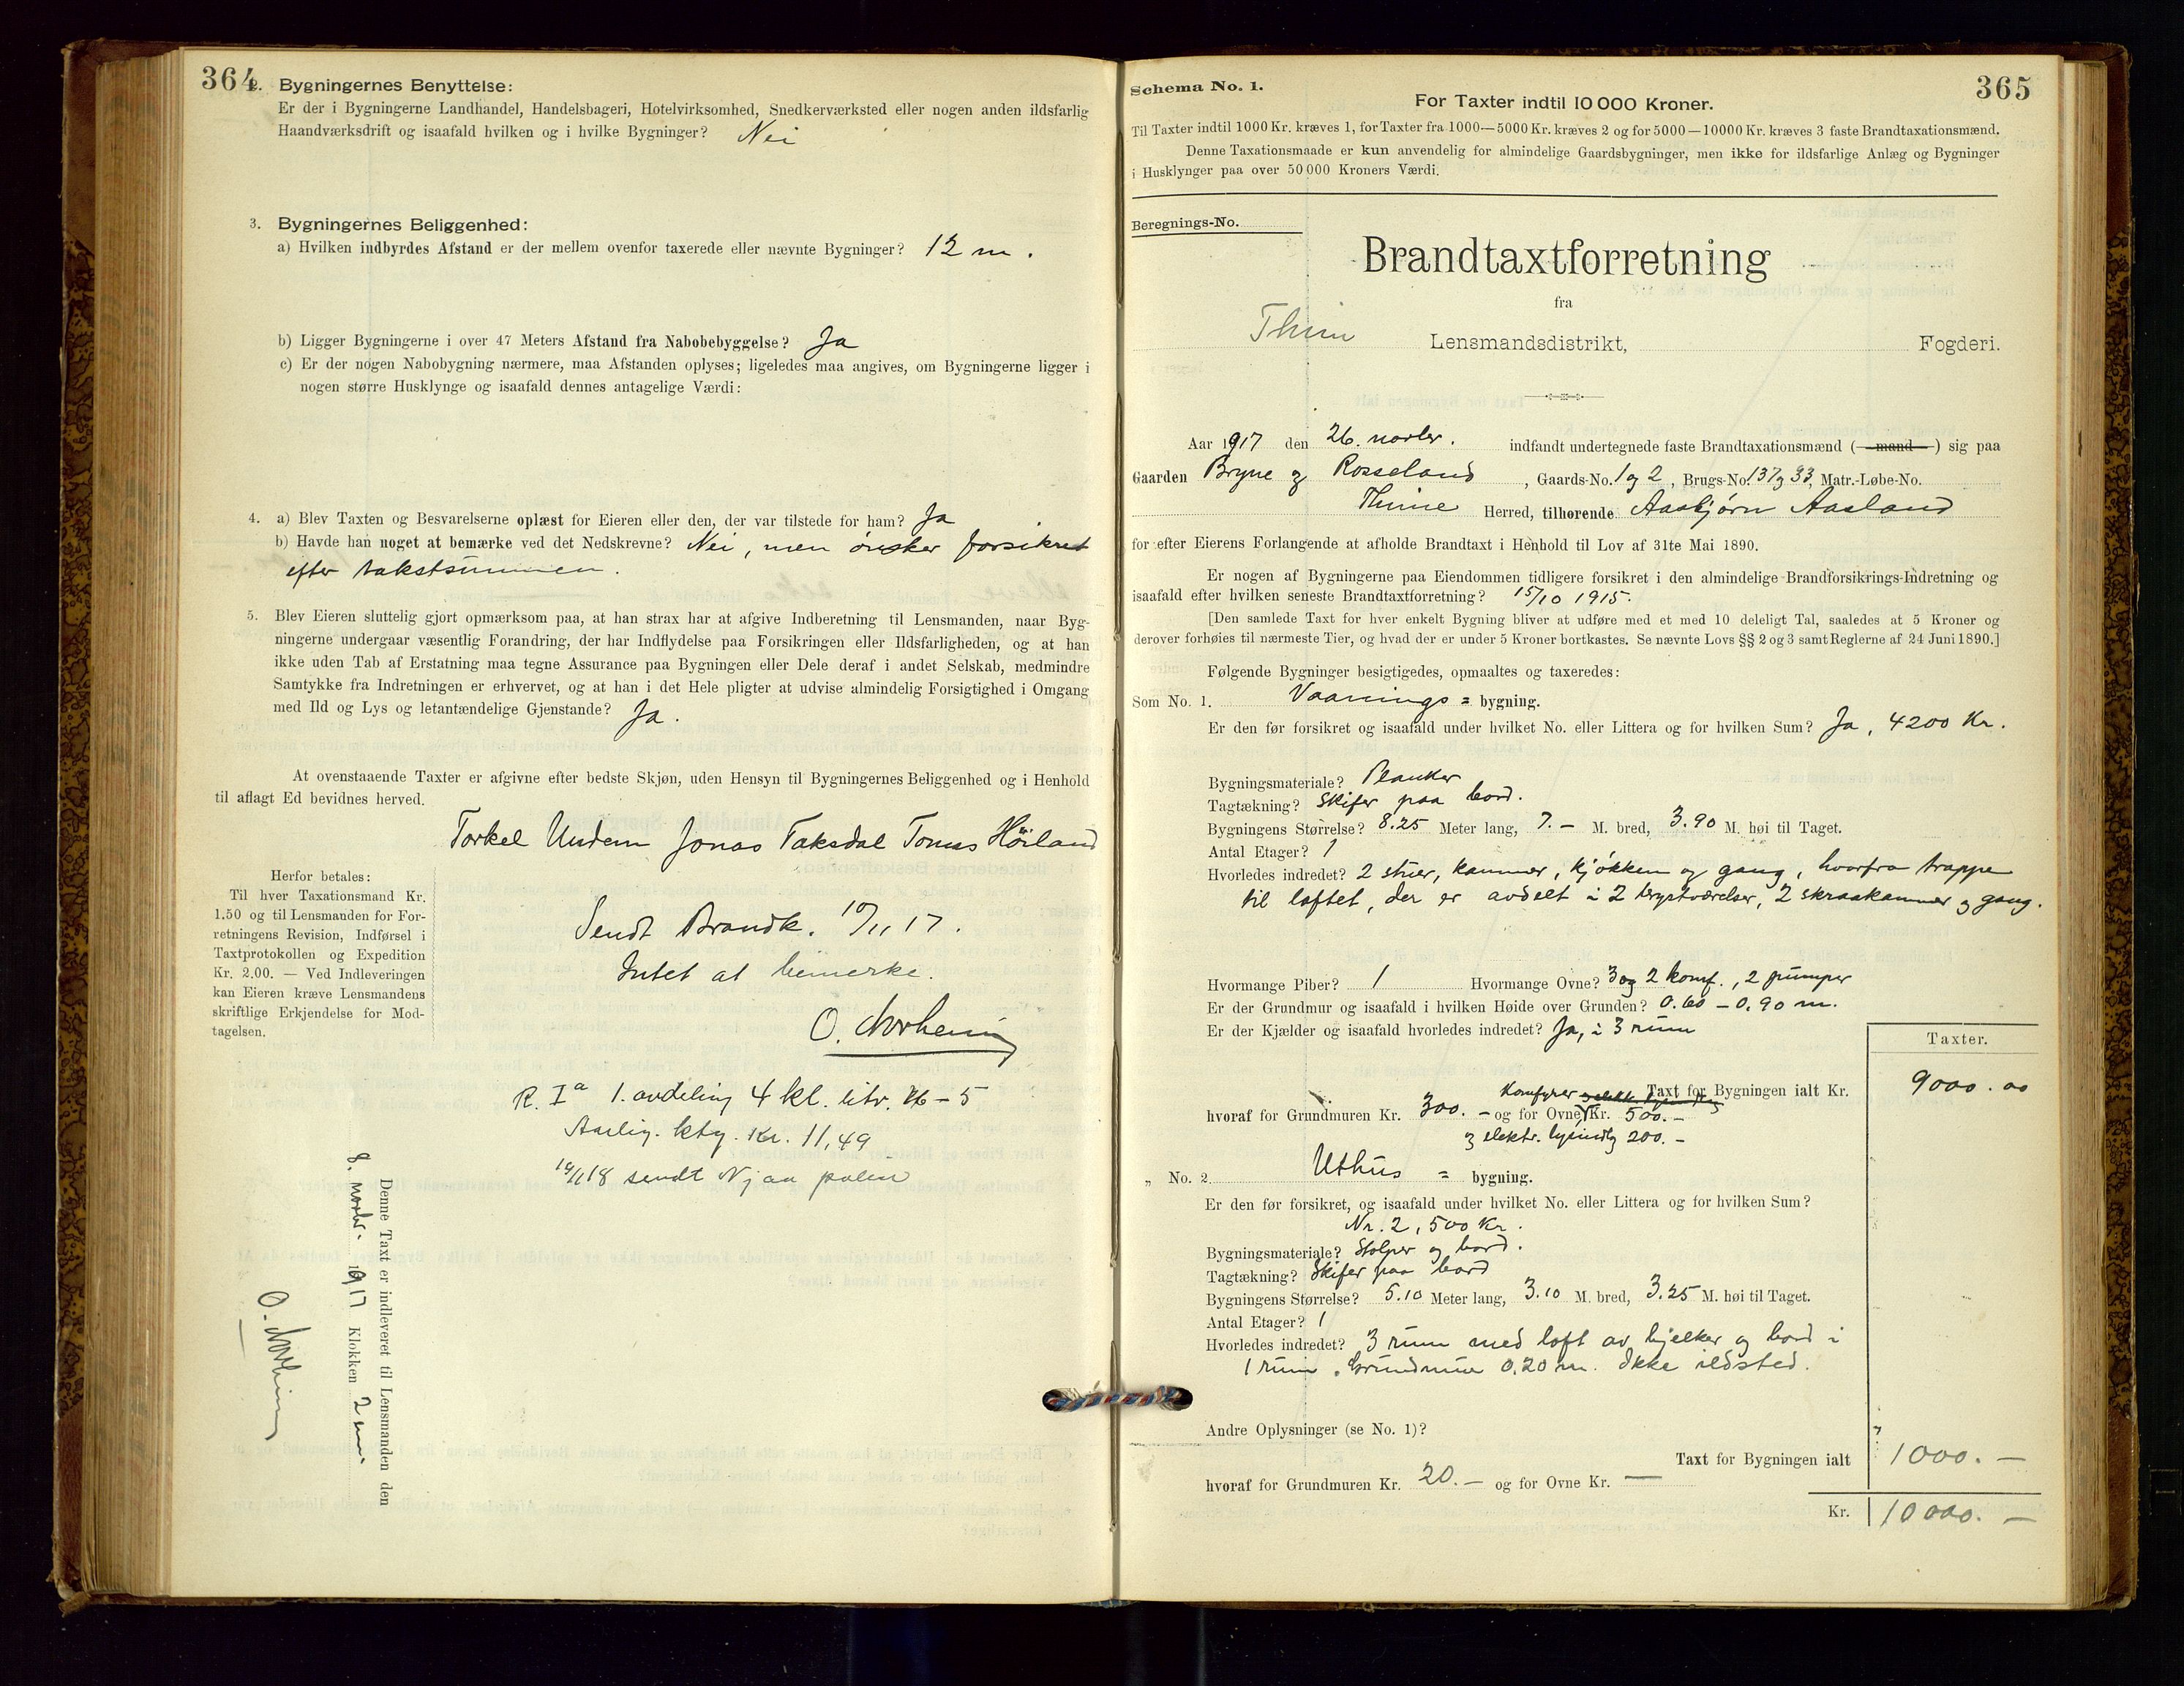 364
2. Bygningernes Benyttelse:
Er der i Bygningerne Landhandel, Handelsbageri, Hotelvirksomhed, Snedkerværksted eller nogen anden ildsfarlig
Haandværksdrift og isaafald hvilken og i hvilke Bygninger? Nei
3. Bygningernes Beliggenhed:
a) Hvilken indbyrdes Afstand er der mellem ovenfor taxerede eller nævnte Bygninger? 12 m.
b) Ligger Bygningerne i over 47 Meters Afstand fra Nabobebyggelse? Ja
c) Er der nogen Nabobygning nærmere, maa Afstanden oplyses; ligeledes maa angives, om Bygningerne ligger i
nogen større Husklynge og isaafald dennes antagelige Værdi:
4. a) Blev Taxten og Besvarelserne oplæst for Eieren eller den, der var tilstede for ham? Ja
b) Havde han noget at bemærke ved det Nedskrevne? Nei, men ønsker forsikret
efter takstsummen.
5. Blev Eieren sluttelig gjort opmærksom paa, at han strax har at afgive Indberetning til Lensmanden, naar Byg-
ningerne undergaar væsentlig Forandring, der har Indflydelse paa Forsikringen eller Ildsfarligheden, og at han
ikke uden Tab af Erstatning maa tegne Assurance paa Bygningen eller Dele deraf i andet Selskab, medmindre
Samtykke fra Indretningen er erhvervet, og at han i det Hele pligter at udvise almindelig Forsigtighed i Omgang
med Ild og Lys og letantændelige Gjenstande? Ja.
At ovenstaaende Taxter er afgivne efter bedste Skjøn, uden Hensyn til Bygningernes Beliggenhed og i Henhold
til aflagt Ed bevidnes herved.
Torkel Undem Jonas Taksdal Tomas Höiland
Herfor betales:
Til hver Taxationsmand Kr.
1,50 og til Lensmanden for For-
retningens Revision, Indførsel i
Taxtprotokollen og Expedition
Kr. 2,00. — Ved Indleveringen
kan Eieren kræve Lensmandens
skriftlige Erkjendelse for Mod-
tagelsen.
Sendt Brandk. 10/11 17.
Intet at bemerke.
R. Ia 1. avdeling 4 kl. litr.
Aarlig. ktg. Kr. 11,49
sendt Njaa polise
Denne Taxt er indleveret til Lensmanden den
8. novbr. 1917 Klokken 2 em.
Schema No. 1.
365
For Taxter indtil 10 000 Kroner.
Til Taxter indtil 1000 Kr. kræves 1, for Taxter fra 1000—5000 Kr. kræves 2 og for 5000—10000 Kr. kræves 3 faste Brandtaxationsmænd.
Denne Taxationsmaade er kun anvendelig for almindelige Gaardsbygninger, men ikke for ildsfarlige Anlæg og Bygninger
i Husklynger paa over 50 000 Kroners Værdi.
Beregnings-No.
Brandtaxtforretning
fra
Thime Lensmandsdistrikt, Fogderi.
Aar 1917 den 26. indfandt undertegnede faste Brandtaxationsmænd (mand) sig paa
Gaarden Bryne og Rosseland, Gaards-No. 1 og 2, Brugs-No. 137 og 33, Matr.-Løbe-No.
Thime Herred, tilhørende Aasbjørn Aasland
for efter Eierens Forlangende at afholde Brandtaxt i Henhold til Lov af 31te Mai 1890.
Er nogen af Bygningerne paa Eiendommen tidligere forsikret i den almindelige Brandforsikrings-Indretning og
isaafald efter hvilken seneste Brandtaxtforretning? 15/10 1915.
[Den samlede Taxt for hver enkelt Bygning bliver at udføre med et med 10 deleligt Tal, saaledes at 5 Kroner og
derover forhøies til nærmeste Tier, og hvad der er under 5 Kroner bortkastes. Se nævnte Lovs §§ 2 og 3 samt Reglerne af 24 Juni 1890.]
Følgende Bygninger besigtigedes, opmaaltes og taxeredes:
Som No. 1. Vaanings = bygning.
Er den før forsikret og isaafald under hvilket No. eller Littera og for hvilken Sum? Ja, 4200 Kr.
Bygningsmateriale? Planker
Tagtækning? Skifer paa bord.
Bygningens Størrelse? 8.25 Meter lang, 7.— M. bred, 3.90 M. høi til Taget.
Antal Etager? 1
Hvorledes indredet? 2 stuer, kammer, kjøkken og gang, hvorfra trappe
til loftet, der er avdelt i 2 brystværelser, 2 skraakammer og gang.
Hvormange Piber? 1 Hvormange Ovne? 3 og 2 komf., 2 pumper
Er der Grundmur og isaafald i hvilken Høide over Grunden? 0.60 — 0.90 m.
Er der Kjælder og isaafald hvorledes indredet? Ja, i 3 rum
Taxter.
Taxt for Bygningen ialt Kr. 9000.00
hvoraf for Grundmuren Kr. 300.— og for Ovne, Komfyrer Kr. 500.—
og elektr. lysindlg 200.—
„ No. 2. Uthus = bygning.
Er den før forsikret, og isaafald under hvilket No. eller Littera og for hvilken Sum?
Nr. 2, 500 Kr.
Bygningsmateriale? Stolper og bord.
Tagtækning? Skifer paa bord
Bygningens Størrelse? 5.10 Meter lang, 3.10 M. bred, 3.25 M. høi til Taget.
Antal Etager? 1
Hvorledes indredet? 3 rum med loft av bjelker og bord i
1 rum. Grundmur 0,20 m. Ikke ildsted.
Andre Oplysninger (se No. 1)?
Taxt for Bygningen ialt 1000.—
hvoraf for Grundmuren Kr. 20.— og for Ovne Kr. —
Kr. 10000.—